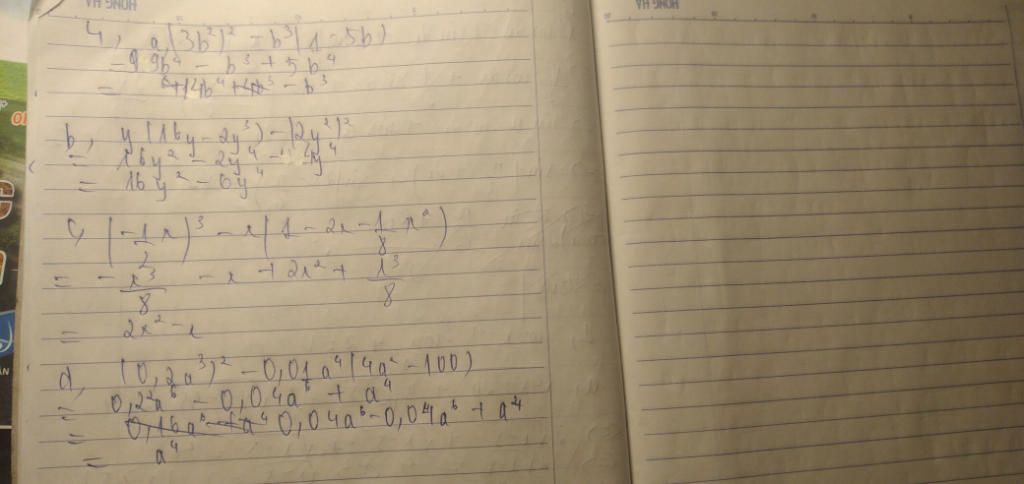 HỒNG HÀ
HỒNG HÀ
4, a, (3b²)² - b³(1 - 5b)
= 9b⁴ - b³ + 5b⁴
= 14b⁴ - b³
b, y(16y - 2y³) - (2y²)²
= 16y² - 2y⁴ - 4y⁴
= 16y² - 6y⁴
c, (-1/2 x)³ - x(1 - 2x - 1/8 x²)
= - x³/8 - x + 2x² + x³/8
= 2x² - x
d, (0,2a³)² - 0,01a⁴(4a² - 100)
= 0,2²a⁶ - 0,04a⁶ + a⁴
= 0,04a⁶ - 0,04a⁶ + a⁴
= a⁴